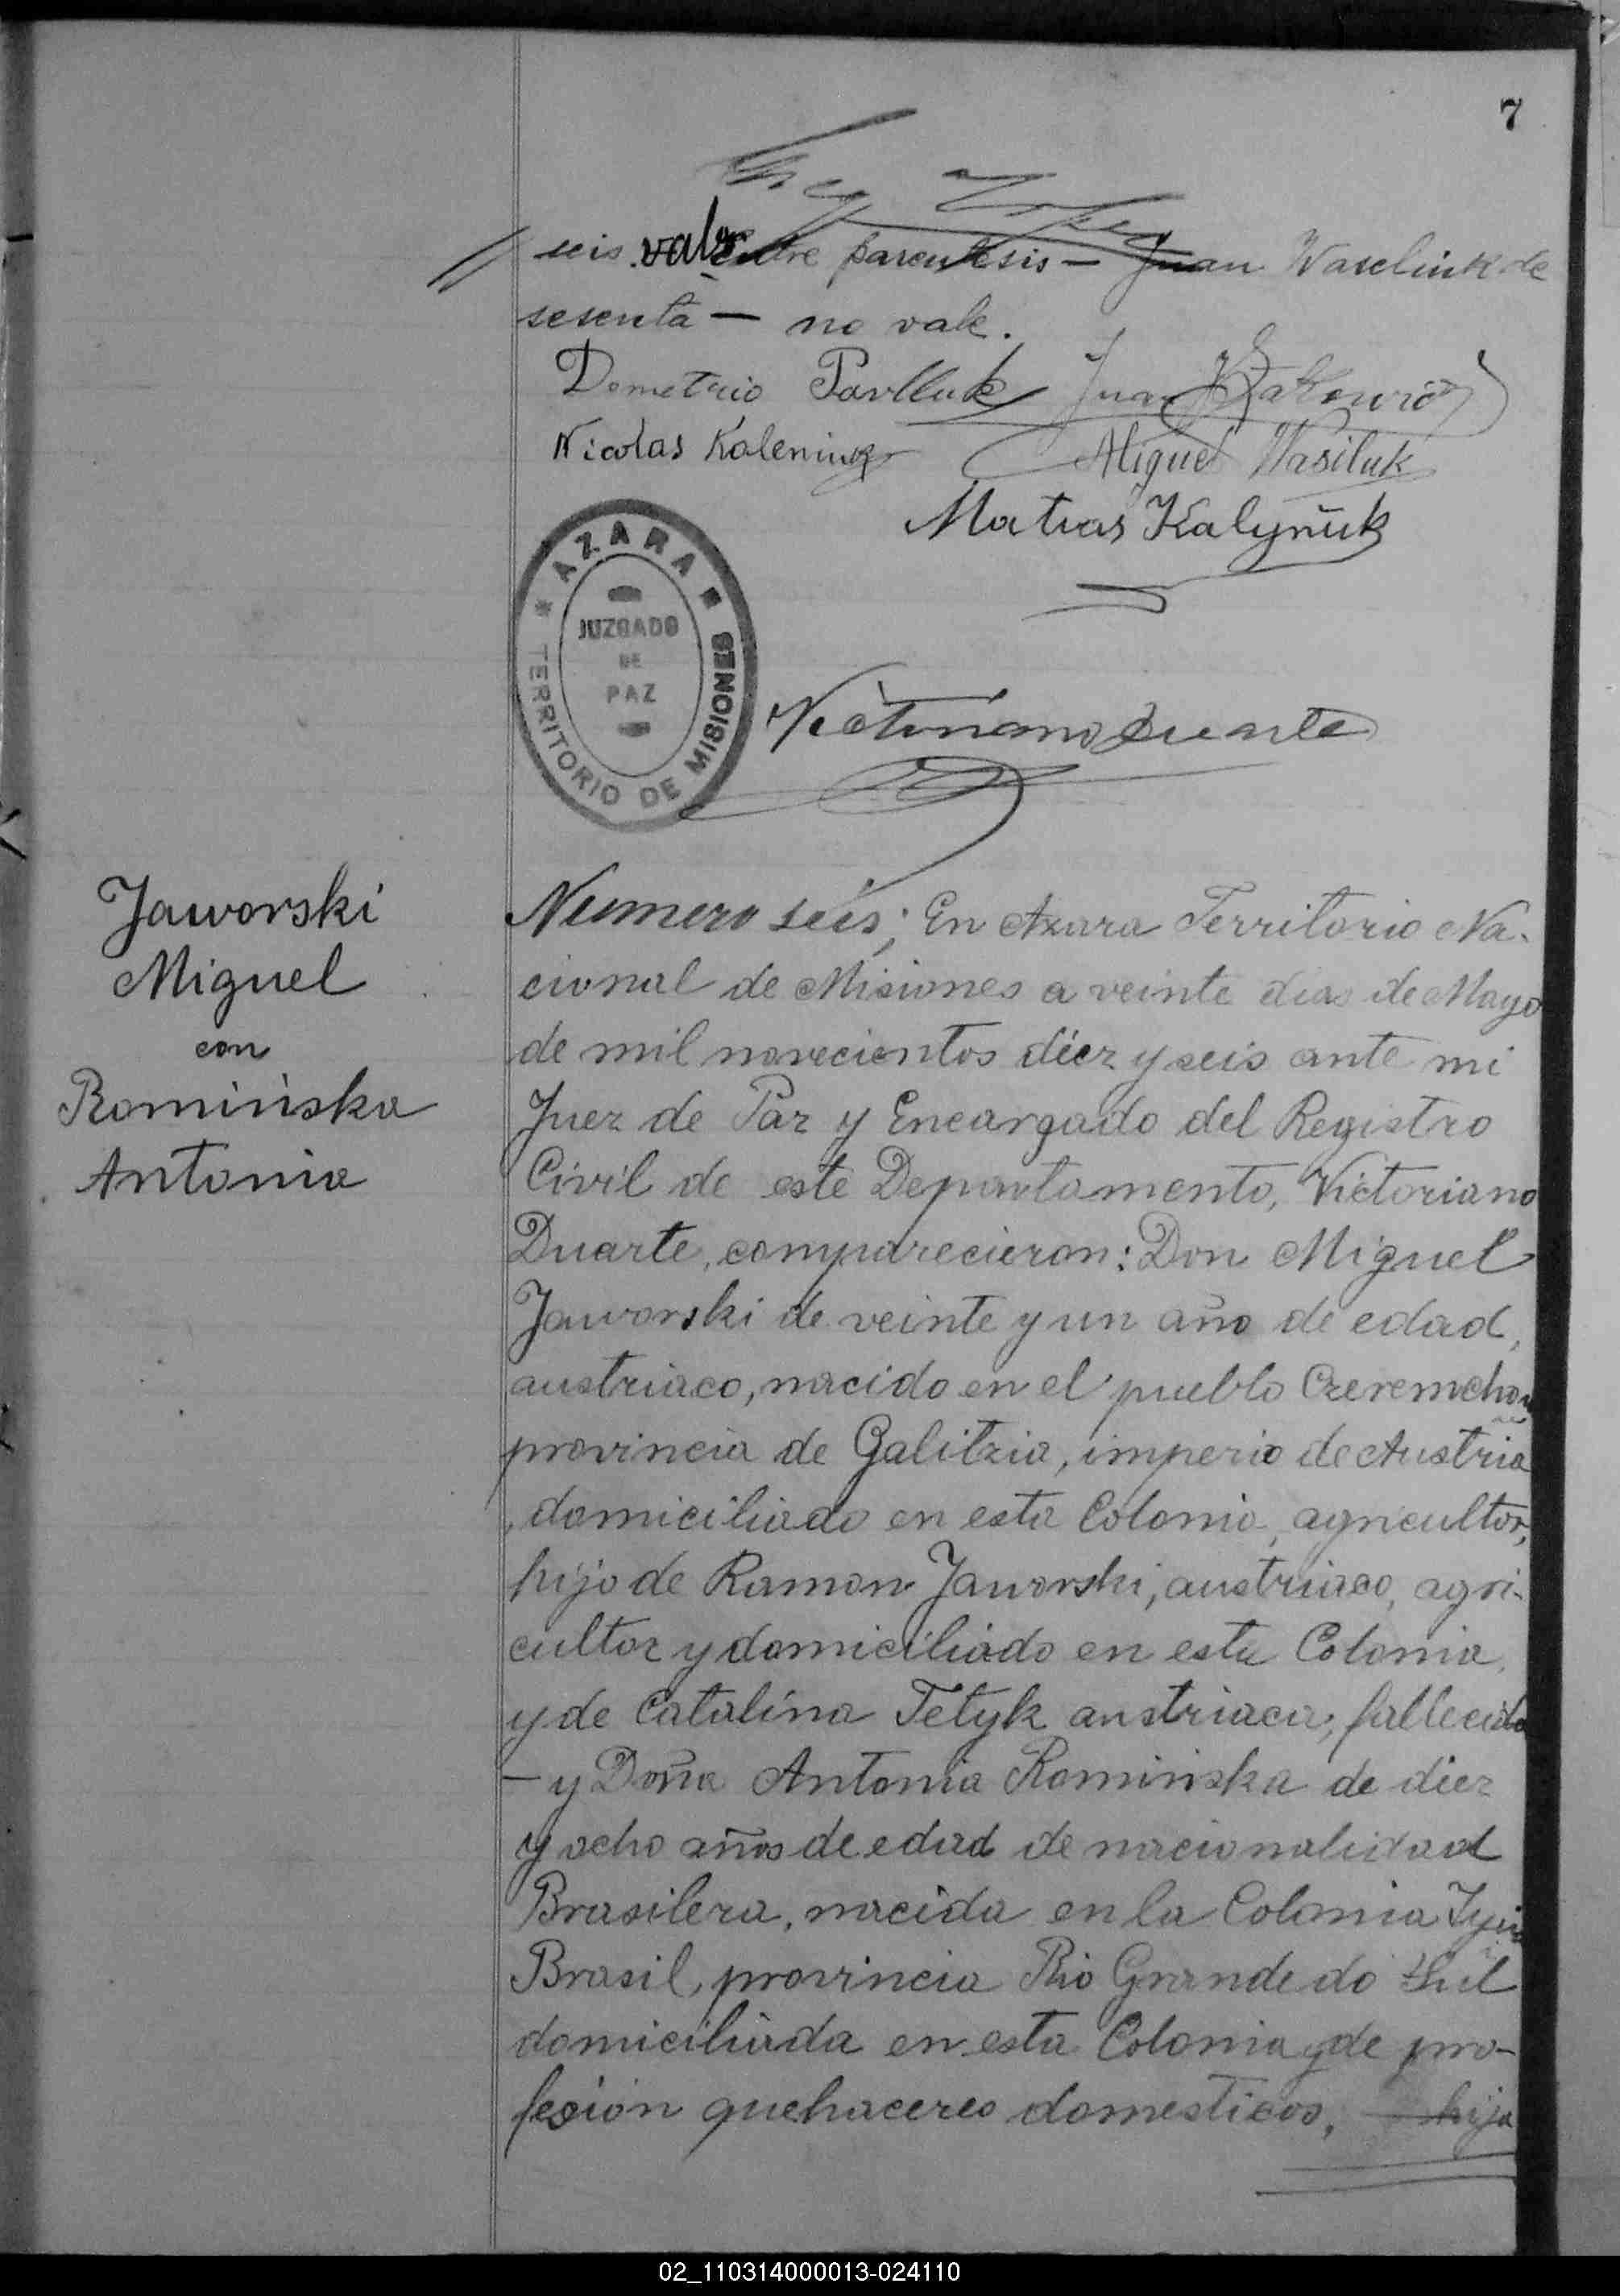 7
seis. vale Entre parentesis — Juan Waseliuk de
sesenta — no vale.
Demetrio Pavlluk Juan
Nicolas Kaleniuk Miguel Wasiluk
Matias Kalyñuk
AZARA
JUZGADO
DE
PAZ
TERRITORIO DE MISIONES
Victoriano Duarte
Jaworski
Miguel
con
Romińska
Antonia
Numero seis; En Azara Territorio Na-
cional de Misiones a veinte dias de Mayo
de mil novecientos diez y seis ante mi
Juez de Paz y Encargado del Registro
Civil de este Departamento, Victoriano
Duarte, comparecieron: Don Miguel
Jaworski de veinte y un año de edad,
austriaco, nacido en el pueblo Czeremchow
provincia de Galitzia, imperio de Austria
, domiciliado en esta Colonia, agricultor,
hijo de Ramon Jaworski, austriaco, agri-
cultor y domiciliado en esta Colonia,
y de Catalina Tetyk austriaca, fallecida
— y Doña Antonia Romińska de diez
y ocho años de edad de nacionalidad
Brasilera, nacida en la Colonia
Brasil, provincia Rio Grande do Sul
domiciliada en esta Colonia y de pro-
fesion quehaceres domesticos, — hija
02_110314000013-024110